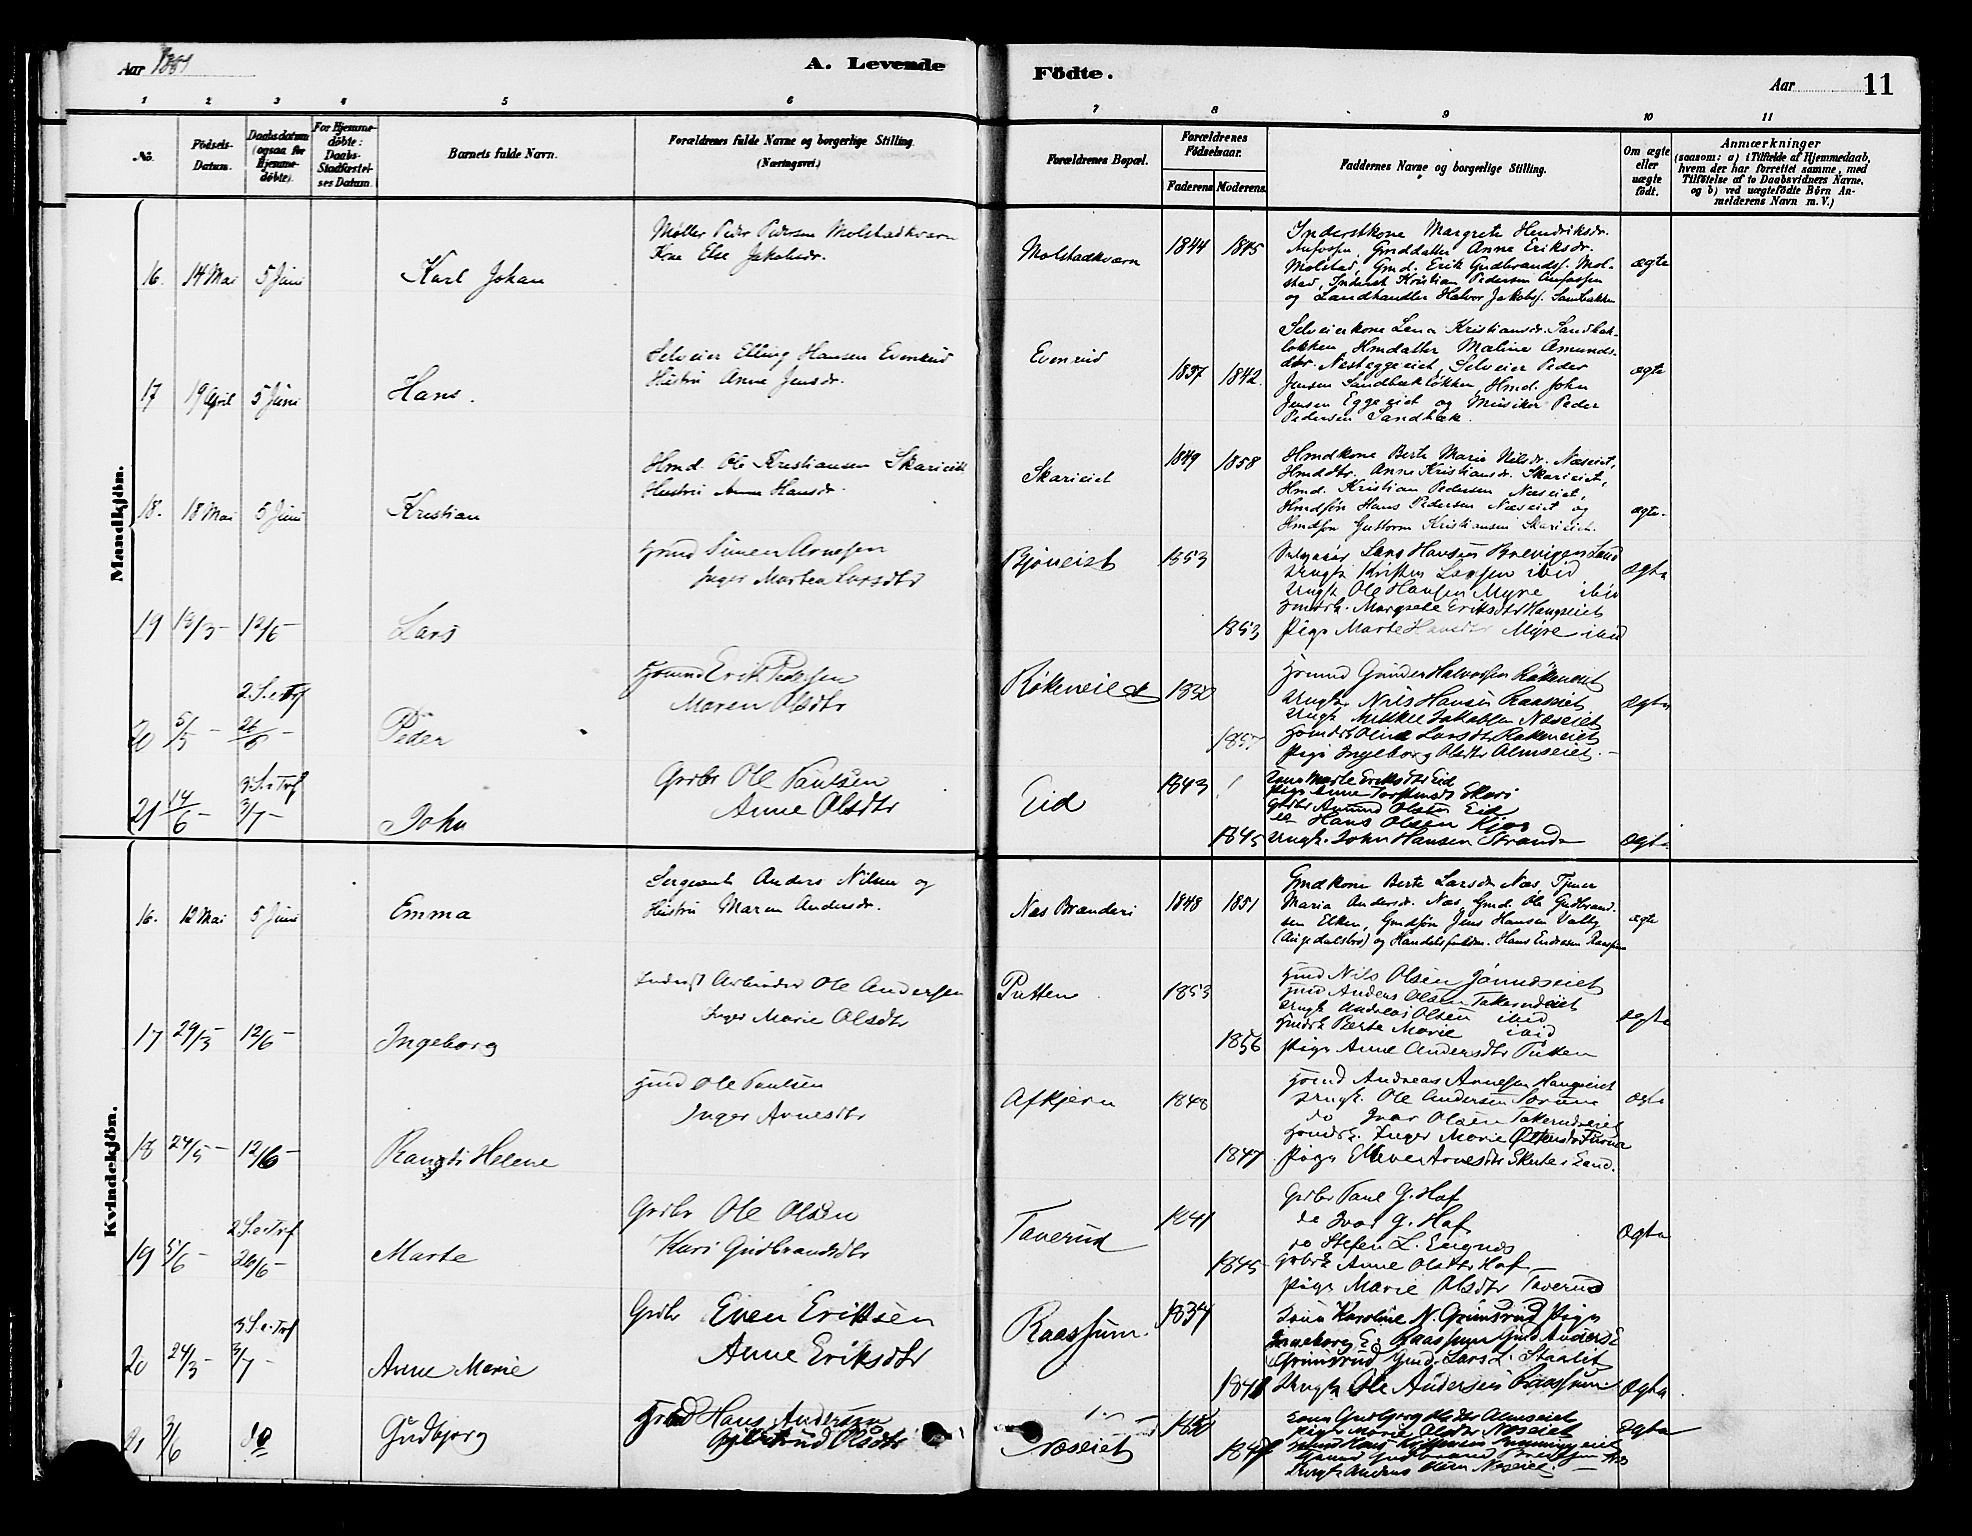 Aar 1881
A. Levende
Födte.
Aar
11
1 2 3 4 5 6 7 8 9 10 11
No.
Födsels-Datum.
Daabsdatum (ogsaa for Hjemme-döbte).
For Hjemme-döbte: Daabs-Stadfæstel-ses Datum.
Barnets fulde Navn.
Forældrenes fulde Navne og borgerlige Stilling. (Næringsvei.)
Forældrenes Bopæl.
Forældrenes Födselsaar.
Faderens Moderens
Faddernes Navne og borgerlige Stilling.
Om ægte eller uægte födt.
Anmærkninger
(saasom: a) i Tilfælde af Hjemmedaab, hvem der har forrettet samme, med Tilföielse af to Daabsvidners Navne, og b) ved uægtefödte Börn Anmelderens Navn m. V.)
Mandkjön.
16. 14 Mai 5 Juni Karl Johan
Møller Peder Pedersen Molstadkværn
Kone Else Jakobsdr.
Molstadkværn 1844 1845
Inderstkone Margrete Hendriksdr.
Gmddatter Anne Eriksdr.
Molstad, Gmd. Erik Gudbrands. Mol-
stad, Inderst Kristian Pedersen
og Landhandler Halvor Jakobs. Sandbakken
ægte
17 19 April 5 Juni Hans.
Selveier Elling Hansen Evenrud
Hustru Anne Jensdr.
Evenrud 1837 1842.
Selveierkone Lena Kristiansdr. Sandbæk-
løkken, Hmdatter Maline Amunds-
dtr. Næseggeeiet, Selveier Peder
Jensen Sandbækløkken, Hmd. John
Jensen Eggeeiet og Musiker Peder
Pedersen Sandbæk.
ægte
18. 18 Mai 5 Juni Kristian
Hmd. Ole Kristiansen Skarieiet
Hustru Anne Hansdr.
Skarieiet 1849 1858
Hmdkone Berte Marie Nilsdr. Næseiet,
Hmddtr. Anne Kristiansdr. Skarieiet,
Hmd. Kristian Pedersen Næseiet,
Hmdsøn Hans Pedersen Næseiet og
Hmdsøn Guttorm Kristiansen Skarieiet.
ægte.
19 13/3 - 12/6 - Lars
Hmd Simen Arnesen
Inger Marthea Larsdtr
Bjøneiet 1853 1853
Lars Hansen Brevigen Land
Ungk Kristen Larsen ibid
Ungk Ole Hansen Myre ibid
Margrete Eriksdtr Haugseiet
Pige Marte Hansdtr Myre ibid
ægte
20 5/5 - 2. S. e. Trf 26/6 - Peder
Hmd Erik Pedersen
Maren Olsdtr
Røkeneiet 1850 1857
Hmd Gunder Halvorsen Røkeneiet
Ungk Nils Hansen Raasseiet
Ungk Mikkel Jakobsen Næseiet
Larsdtr Røkeneiet
Pige Ingeborg Olsdtr Almseiet. -
ægte
21 14/6 - 3. S. e. Trf 3/7 - John
Grdbr Ole Paulsen
Anne Olsdtr
Eid 1843 1845
Kone Marte Eriksdtr Eid
Pige Anne Torstensdtr Skari
Grdbr Amund Olsen Eid
Hans Olsen Kjos
Ungk. John Hansen Strande
ægte
Kvindekjön.
16. 12 Mai 5 Juni Emma
Sergeant Anders Nilsen og
Hustru Maren Andersdr.
Næs Brænderi 1848 1851
Gmdkone Berte Larsdr Næs, Tjener
Maria Andersdr. Næs, Gmd. Ole Gudbrand-
sen Elken, Gmdsøn Jens Hansen Valby
og Handelsfuldm. Hans Endresen Raassum
ægte
17 29/3 - 12/6 - Ingeborg
Inderst Arbeider Ole Andersen
Inger Marie Olsdtr
Putten 1853 1856
Hmd Nils Olsen
Hmd Anders Olsen Takerudeiet
Ungk Andreas Olsen ibid
Berte Marie ibid
Pige Anne Andersdtr Putten
ægte
18 24/5 - 12/6 - Rangdi Helene
Hmd Ole Paulsen
Inger Arnesdtr
Afkjern 1848 1847
Hmd Andreas Arnesen Haugseiet
Ungk. Ole Andersen
do Ivar Olsen Takerudeiet
Inger Marie
Pige Arnesdtr Land.
ægte
19 5/6 - 2 S. e. Trf 26/6 - Marte
Grdbr Ole Olsen
Kari Gudbrandsdtr
Taverud 1841 1845
Grdbr Paul G. Hof
do Ivar G. Hof
do Stefen L. Engnæs
Anne Olsdtr Hof
Pige Marie Olsdtr Taverud
ægte
20 24/3 - 3 S. e. Trf 3/7 - Anne Marie
Grdbr Even Eriksen
Anne Eriksdtr
Raassum. 1834 1841
Kone Karoline N. Grimsrud Pige
Ingeborg E. Raassum Gmd Anders E
Grimsrud Gmd. Lars L.
Ungk Ole Andersen Raassum.
ægte
21 3/6 do Gudbjorg
Hmd Hans Andersen
Olsdtr
Næseiet 1850 1847
Kone Gudbjørg Olsdtr Almseiet
Pige Marie Olsdtr Næseiet
Hmd Hans
Gudbrand
Ungk Anders Næseiet. -
ægte